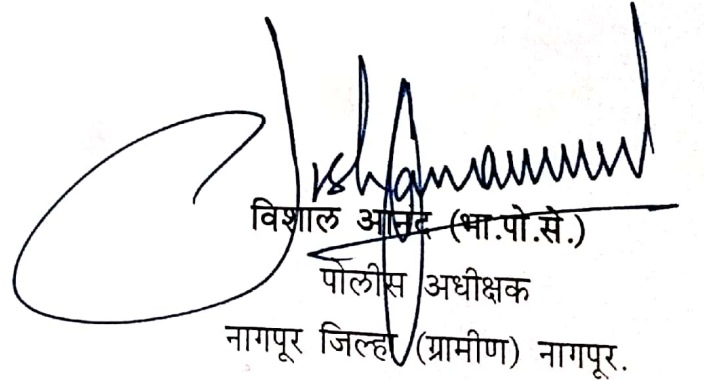 विशाल आनंद (भा.पो.से.)
पोलीस अधीक्षक
नागपूर जिल्हा (ग्रामीण) नागपूर.